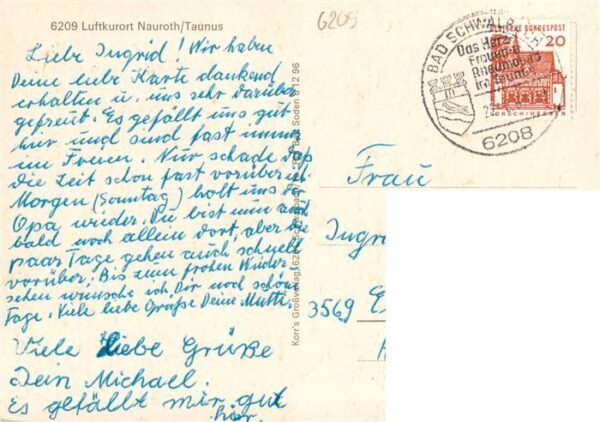 6209 Luftkurort Nauroth/Taunus
6205
Liebe Ingrid! Wir haben
Deine liebe Karte dankend
erhalten u. uns sehr darüber
gefreut. Es gefällt uns gut
hier und sind fast immer
im Freien. Nur schade daß
die Zeit schon fast vorüber ist
Morgen (Sonntag) holt uns
Opa wieder. Du bist nun
bald noch allein dort, aber die
paar Tage gehen auch schnell
vorüber. Bis zum frohen Wieder-
sehen wünsche ich Dir noch schöne
Tage. Viele liebe Grüße Deine Mutti.
Viele liebe Grüße
Dein Michael.
Es gefällt mir gut
hier.
Korr's Großverlag 6208 Bad Soden 8 12 96
BAD SCHWALBACH
Das Herz
Frauen-u
Rheuma
6208
DEUTSCHE BUNDESPOST
20
LORSCH/HESSEN
Frau
Ingrid
3569